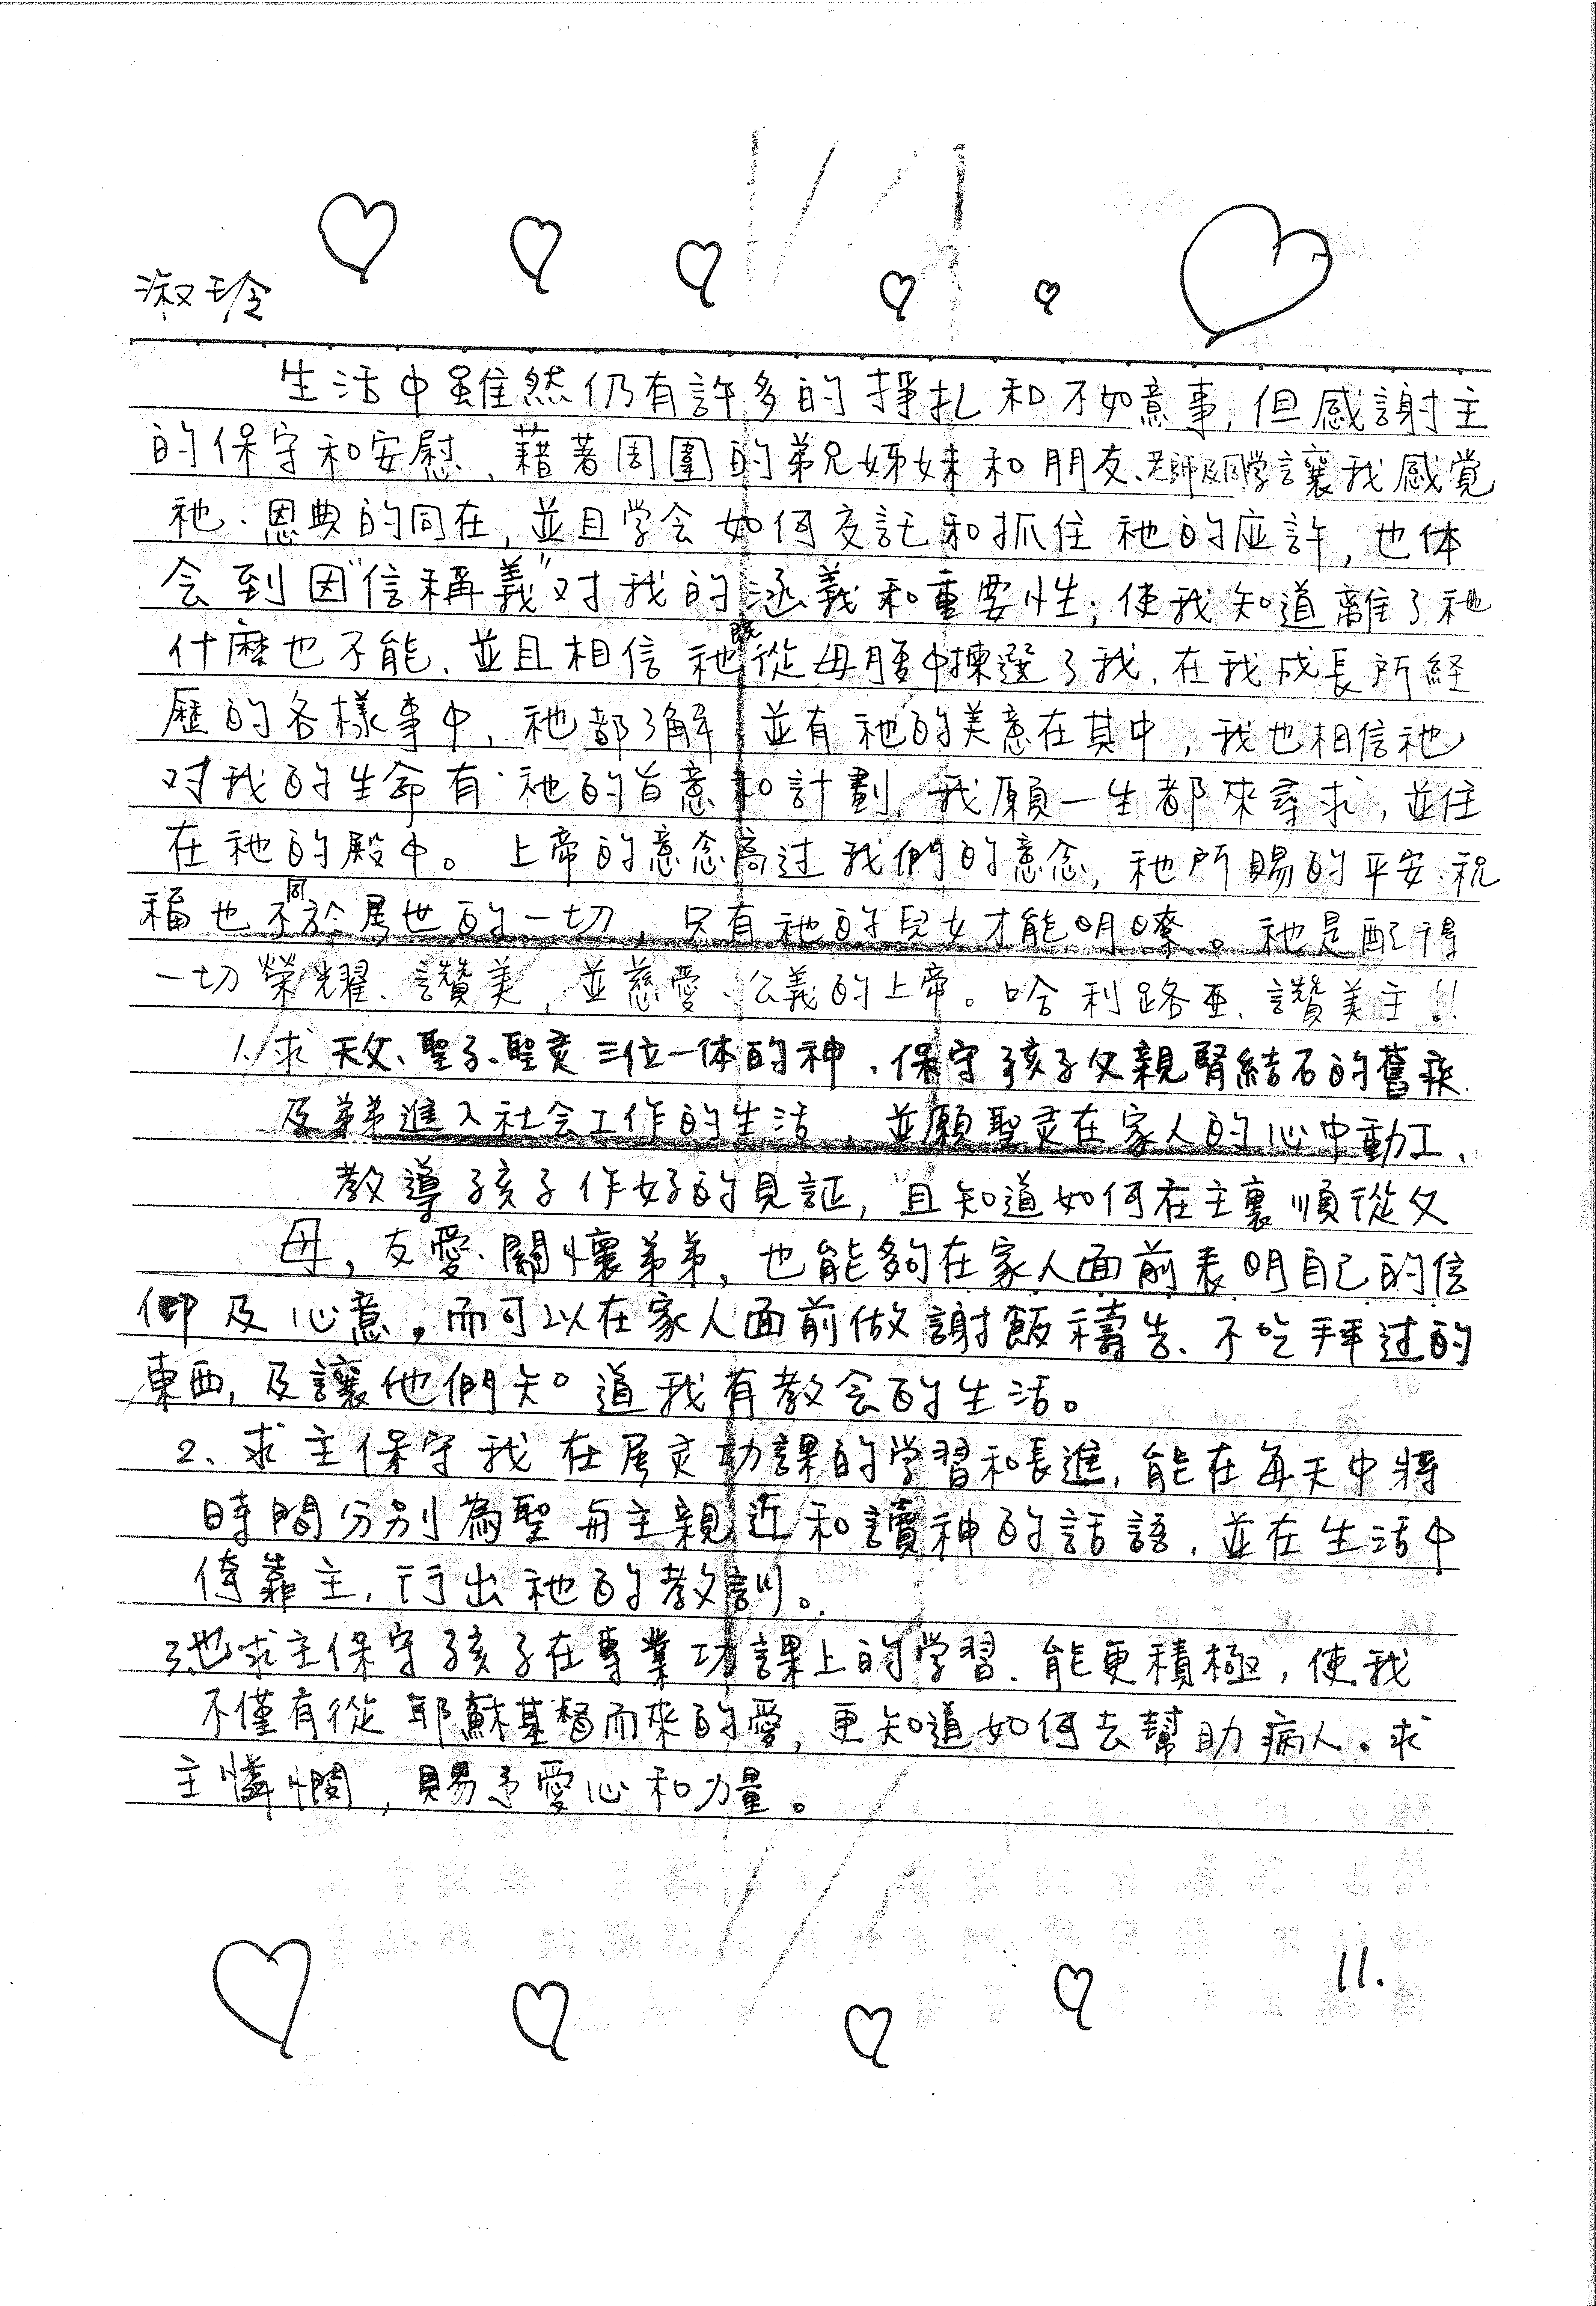 淑玲
生活中雖然仍有許多的掙扎和不如意事,但感謝主
的保守和安慰、藉著周圍的弟兄姊妹和朋友、老師及同学讓我感覚
祂、恩典的同在,並且学会如何交託和抓住祂的应許,也体
会到因"信稱義"对我的涵義和重要性;使我知道離了祂
什麼也不能.並且相信祂既從母腹中揀選了我.在我成長所経
歷的各樣事中、祂都了解並有祂的美意在其中,我也相信祂
对我的生命有祂的旨意和計劃.我願一生都來尋求,並住
在祂的殿中。上帝的意念高过我們的意念,祂所賜的平安、祝
福也不同於属世的一切,只有祂的兒女才能明暸。祂是配得
一切榮耀、讚美,並慈愛、公義的上帝。哈利路亚、讚美主!!
1.求天父、聖子、聖灵三位一体的神.保守孩子父親腎結石的舊疾.
及弟弟進入社会工作的生活,並願聖灵在家人的心中動工、
教導孩子作好的見証,且知道如何在主裏順從父
母,友愛、關懷弟弟,也能夠在家人面前表明自己的信
仰及心意,而可以在家人面前做謝飯禱告、不吃拜过的
東西,及讓他們知道我有教会的生活。
2、求主保守我在属灵功課的学習和長進,能在每天中將
時間分別為聖與主親近和讀神的話語,並在生活中
倚靠主,行出祂的教訓。
3.也求主保守孩子在專業功課上的学習、能更積極,使我
不僅有從耶穌基督而來的愛,更知道如何去幫助病人。求
主憐憫,賜予愛心和力量。
11.